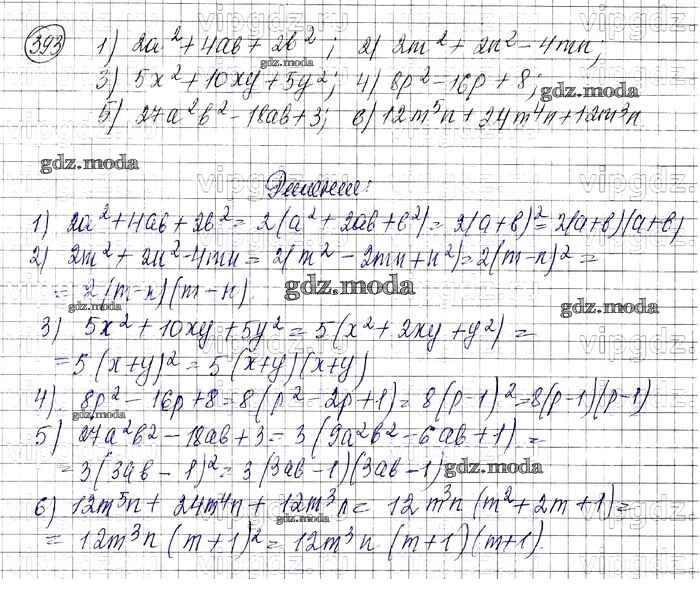 393 1) 2a² + 4ab + 2b²; 2) 2m² + 2n² - 4mn;
3) 5x² + 10xy + 5y²; 4) 8p² - 16p + 8;
5) 27a²b² - 18ab + 3; 6) 12m⁵n + 24m⁴n + 12m³n
Решение:
1) 2a² + 4ab + 2b² = 2(a² + 2ab + b²) = 2(a+b)² = 2(a+b)(a+b)
2) 2m² + 2n² - 4mn = 2(m² - 2mn + n²) = 2(m-n)² =
= 2(m-n)(m-n).
3) 5x² + 10xy + 5y² = 5(x² + 2xy + y²) =
= 5(x+y)² = 5(x+y)(x+y)
4) 8p² - 16p + 8 = 8(p² - 2p + 1) = 8(p-1)² = 8(p-1)(p-1)
5) 27a²b² - 18ab + 3 = 3(9a²b² - 6ab + 1) =
= 3(3ab - 1)² = 3(3ab-1)(3ab-1)
6) 12m⁵n + 24m⁴n + 12m³n = 12m³n(m² + 2m + 1) =
= 12m³n(m+1)² = 12m³n(m+1)(m+1).
gdz.moda
gdz.moda
gdz.moda
gdz.moda
gdz.moda
gdz.moda
gdz.moda
gdz.moda
vipgdz.ru
vipgdz.ru
vipgdz.ru
vipgdz.ru